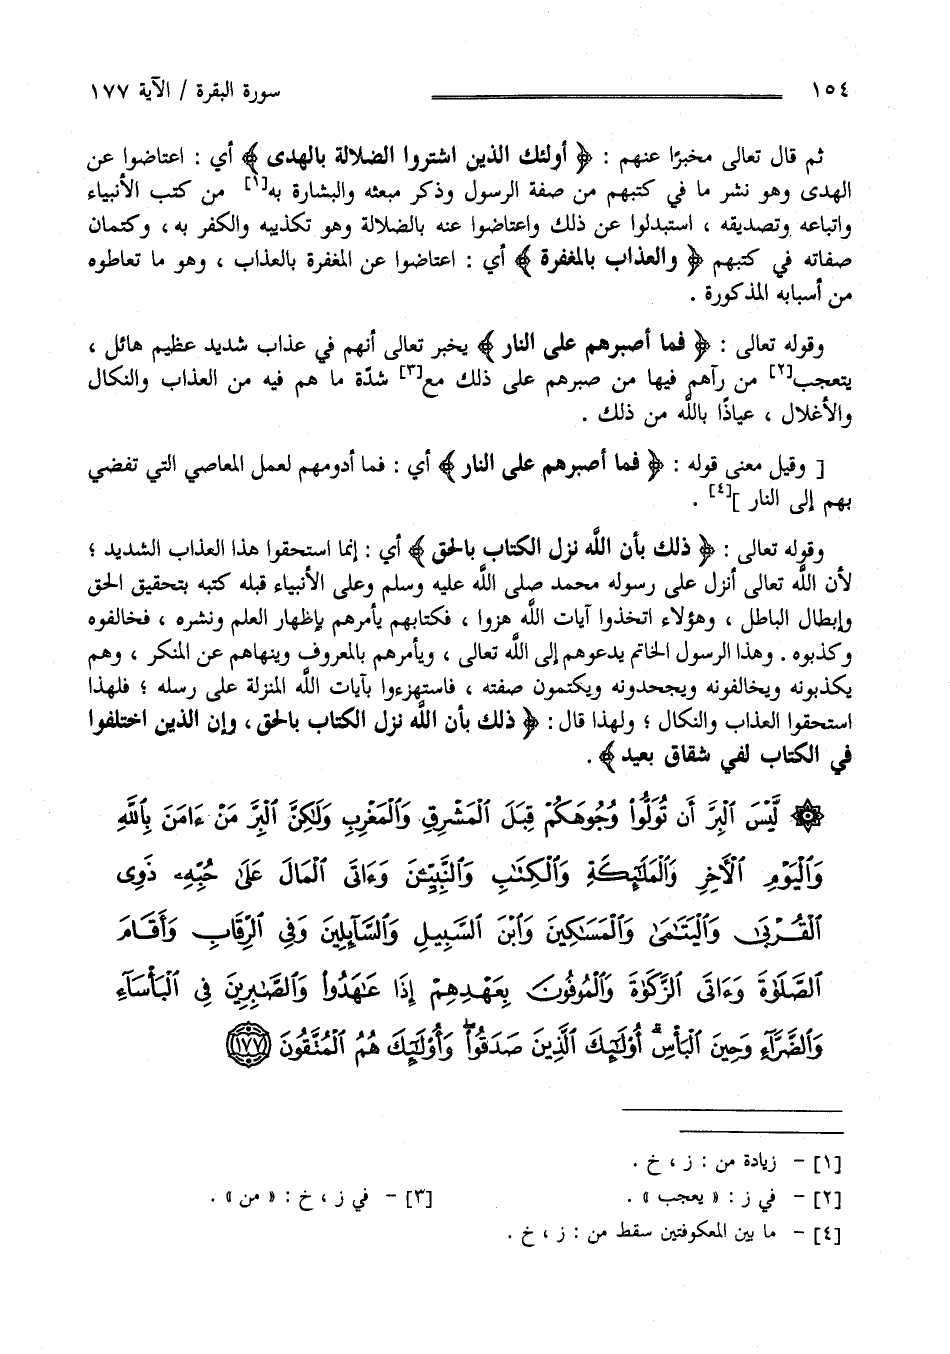 ١٥٤ سورة البقرة / الآية ١٧٧
ثم قال تعالى مخبرًا عنهم : ﴿ أولئك الذين اشتروا الضلالة بالهدى ﴾ أي : اعتاضوا عن
الهدى وهو نشر ما في كتبهم من صفة الرسول وذكر مبعثه والبشارة به[١] من كتب الأنبياء
واتباعه وتصديقه ، استبدلوا عن ذلك واعتاضوا عنه بالضلالة وهو تكذيبه والكفر به ، وكتمان
صفاته في كتبهم ﴿ والعذاب بالمغفرة ﴾ أي : اعتاضوا عن المغفرة بالعذاب ، وهو ما تعاطوه
من أسبابه المذكورة .
وقوله تعالى : ﴿ فما أصبرهم على النار ﴾ يخبر تعالى أنهم في عذاب شديد عظيم هائل ،
يتعجب[٢] من رآهم فيها من صبرهم على ذلك مع[٣] شدّة ما هم فيه من العذاب والنكال
والأغلال ، عياذًا باللَّه من ذلك .
[ وقيل معنى قوله : ﴿ فما أصبرهم على النار ﴾ أي : فما أدومهم لعمل المعاصي التي تفضي
بهم إلى النار ][٤] .
وقوله تعالى : ﴿ ذلك بأن اللَّه نزل الكتاب بالحق ﴾ أي : إنما استحقوا هذا العذاب الشديد ؛
لأن اللَّه تعالى أنزل على رسوله محمد صلى اللَّه عليه وسلم وعلى الأنبياء قبله كتبه بتحقيق الحق
وإبطال الباطل ، وهؤلاء اتخذوا آيات اللَّه هزوا ، فكتابهم يأمرهم بإظهار العلم ونشره ، فخالفوه
وكذبوه . وهذا الرسول الخاتم يدعوهم إلى اللَّه تعالى ، ويأمرهم بالمعروف وينهاهم عن المنكر ، وهم
يكذبونه ويخالفونه ويجحدونه ويكتمون صفته ، فاستهزءوا بآيات اللَّه المنزلة على رسله ؛ فلهذا
استحقوا العذاب والنكال ؛ ولهذا قال : ﴿ ذلك بأن اللَّه نزل الكتاب بالحق ، وإن الذين اختلفوا
في الكتاب لفي شقاق بعيد ﴾ .
۞ لَّيْسَ ٱلْبِرَّ أَن تُوَلُّوا۟ وُجُوهَكُمْ قِبَلَ ٱلْمَشْرِقِ وَٱلْمَغْرِبِ وَلَٰكِنَّ ٱلْبِرَّ مَنْ ءَامَنَ بِٱللَّهِ
وَٱلْيَوْمِ ٱلْأَخِرِ وَٱلْمَلَٰٓئِكَةِ وَٱلْكِتَٰبِ وَٱلنَّبِيِّـۧنَ وَءَاتَى ٱلْمَالَ عَلَىٰ حُبِّهِۦ ذَوِى
ٱلْقُرْبَىٰ وَٱلْيَتَٰمَىٰ وَٱلْمَسَٰكِينَ وَٱبْنَ ٱلسَّبِيلِ وَٱلسَّآئِلِينَ وَفِى ٱلرِّقَابِ وَأَقَامَ
ٱلصَّلَوٰةَ وَءَاتَى ٱلزَّكَوٰةَ وَٱلْمُوفُونَ بِعَهْدِهِمْ إِذَا عَٰهَدُوا۟ وَٱلصَّٰبِرِينَ فِى ٱلْبَأْسَآءِ
وَٱلضَّرَّآءِ وَحِينَ ٱلْبَأْسِ ۗ أُو۟لَٰٓئِكَ ٱلَّذِينَ صَدَقُوا۟ ۖ وَأُو۟لَٰٓئِكَ هُمُ ٱلْمُتَّقُونَ ١٧٧
[١] - زيادة من : ز ، خ .
[٢] - في ز : « يعجب » . [٣] - في ز ، خ : « من » .
[٤] - ما بين المعكوفتين سقط من : ز ، خ .